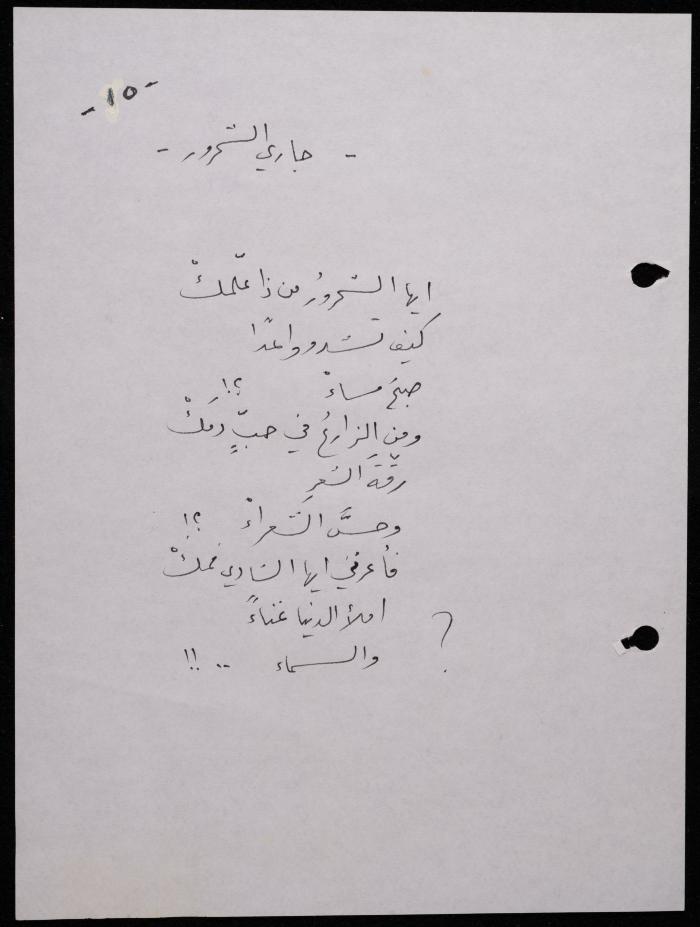 -١٥-
- جاري الشحرور -
ايها الشحرورُ من ذا علّمكْ
كيف تشدو واعدًا
صبحَ مساءْ ؟!
ومن الزارعُ في حبٍّ دمَكْ
رقّةَ الشعرِ
وحسَّ الشعراءْ ؟!
فأعرني ايها الشادي فمكْ
املأ الدنيا غناءً
والسماء .. !!
؟